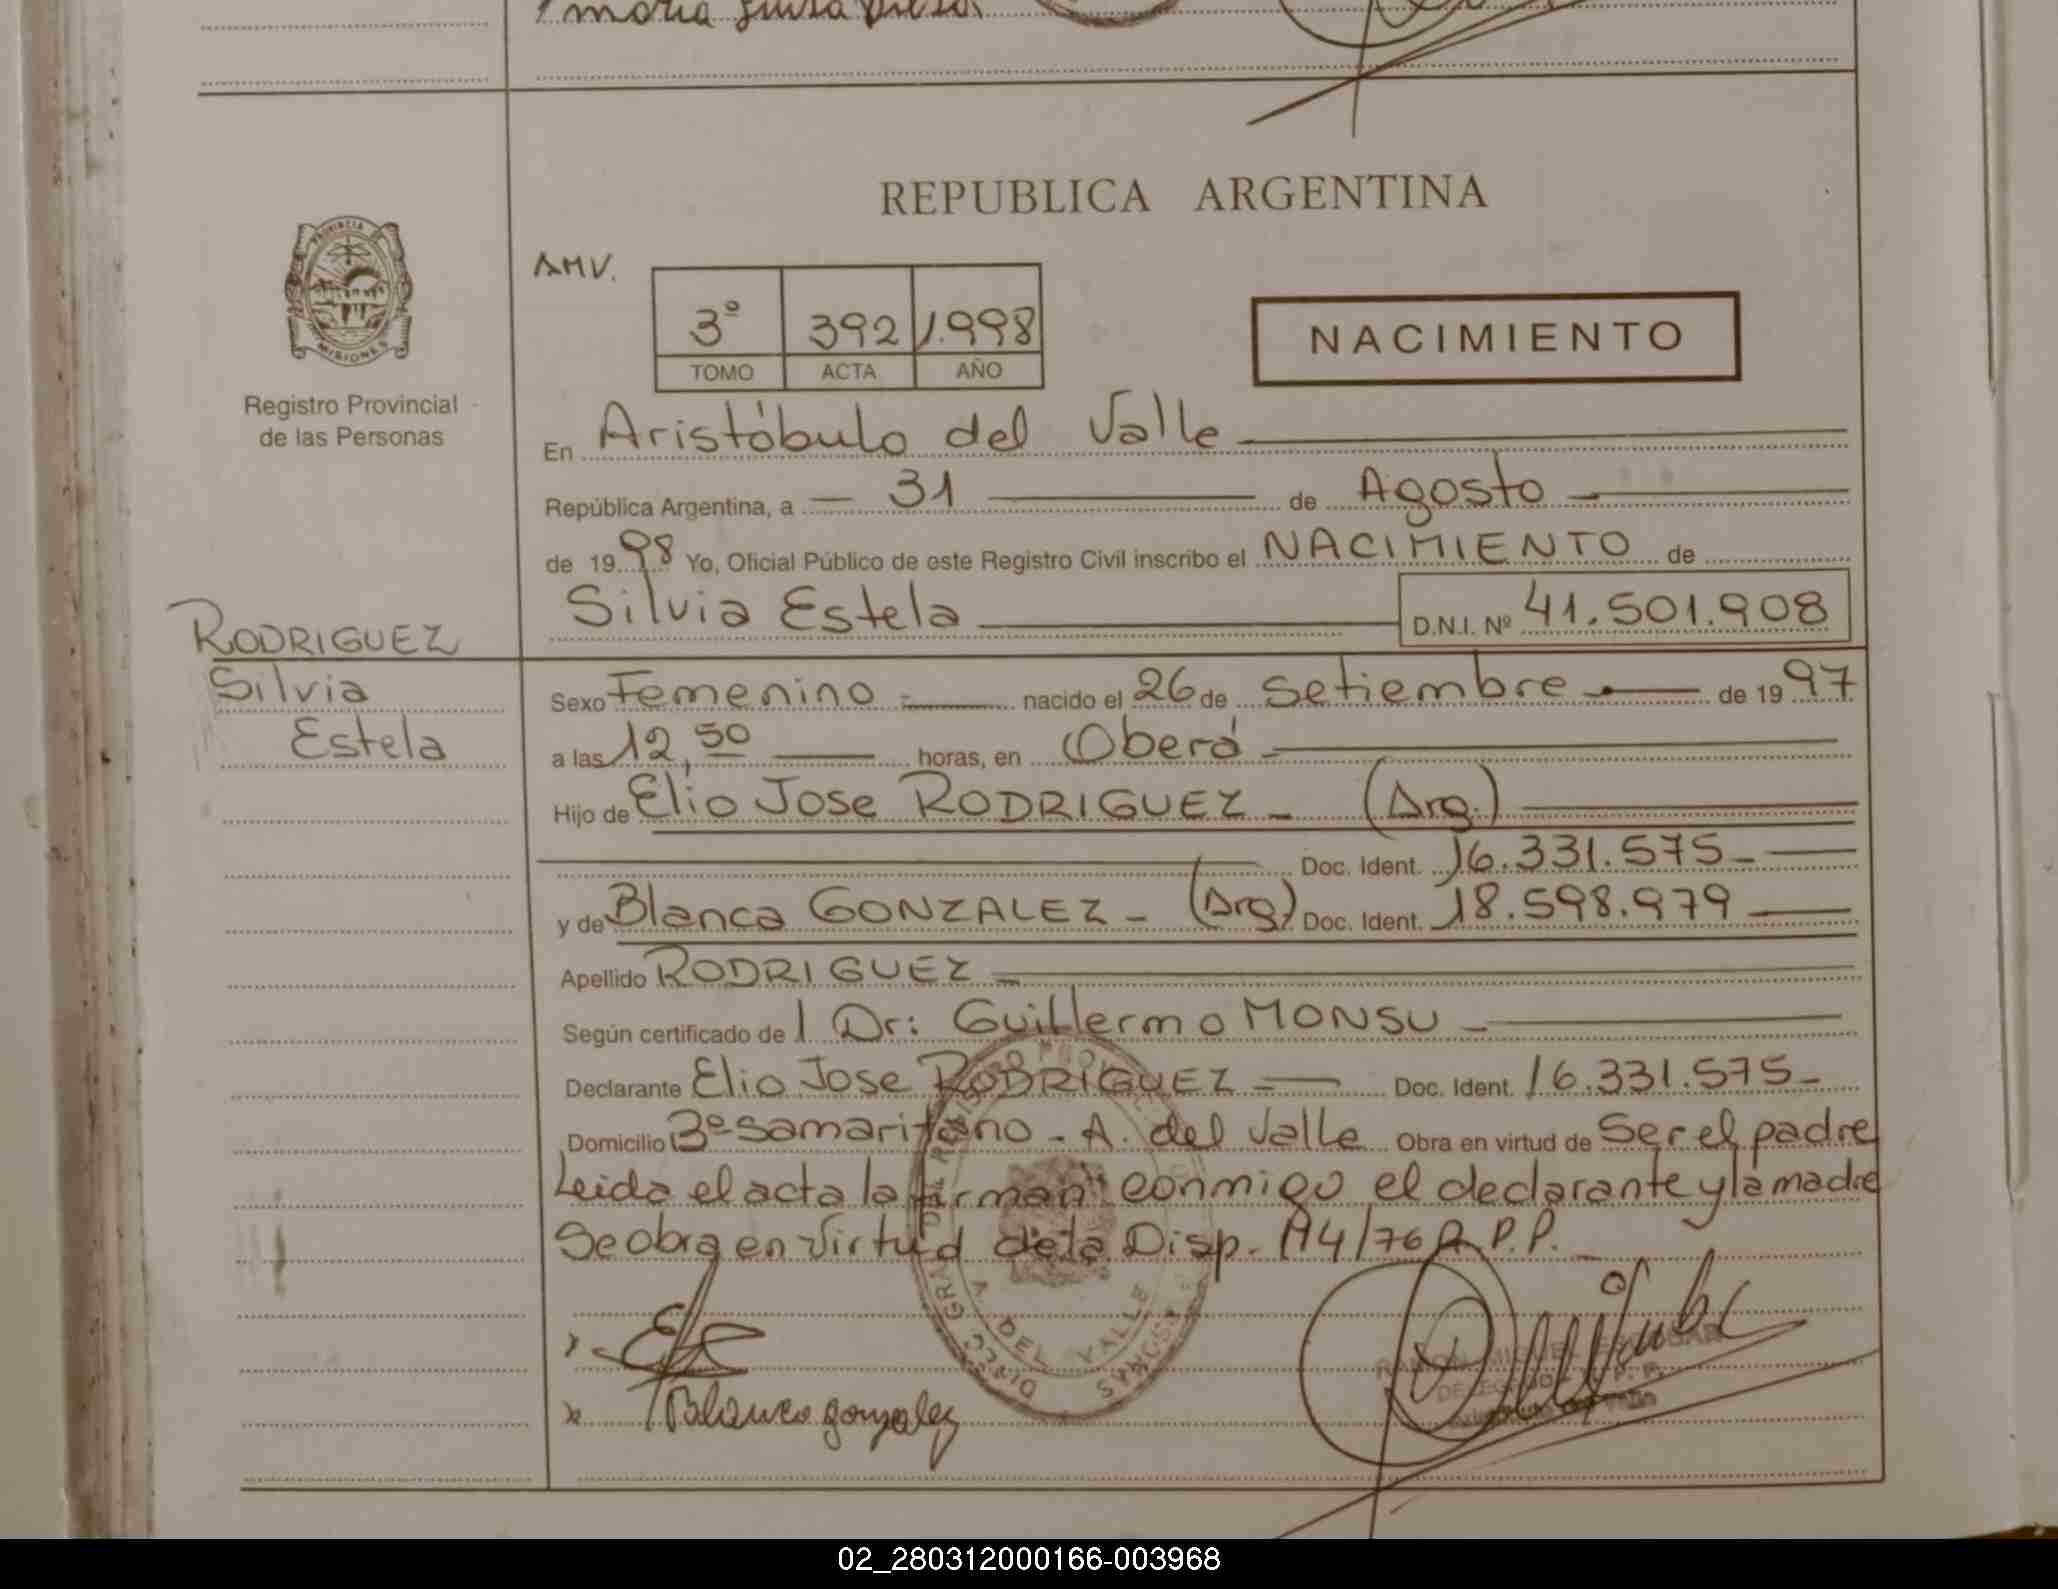 maria luisa
REPUBLICA ARGENTINA
PROVINCIA DE
MISIONES
Registro Provincial
de las Personas
AMV.
3º 392 1.998
TOMO ACTA AÑO
NACIMIENTO
En Aristóbulo del Valle
República Argentina, a 31 de Agosto
de 1998 Yo, Oficial Público de este Registro Civil inscribo el NACIMIENTO de
Silvia Estela D.N.I. Nº 41.501.908
RODRIGUEZ
Silvia
Estela
Sexo Femenino nacido el 26 de Setiembre de 1997
a las 12,50 horas, en Oberá
Hijo de Elio Jose RODRIGUEZ - (Arg.)
Doc. Ident. 16.331.575-
y de Blanca GONZALEZ - (Arg) Doc. Ident. 18.598.979
Apellido RODRIGUEZ
Según certificado de l Dr: Guillermo MONSU -
Declarante Elio Jose RODRIGUEZ Doc. Ident. 16.331.575-
Domicilio Bº Samaritano - A. del Valle Obra en virtud de Ser el padre
Leida el acta la "firman" conmigo el declarante y la madre
Se obra en virtud de la Disp. 114/76 R.P.P.
DEL VALLE
RAMON MIGUEL ESCOBAR
Blanca gonzalez
02_280312000166-003968